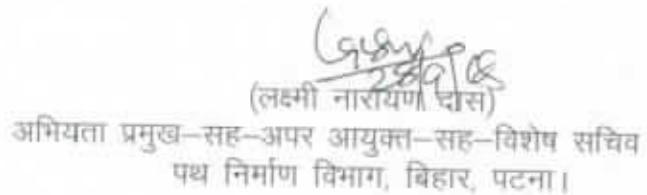 (लक्ष्मी नारायण दास)
अभियता प्रमुख–सह–अपर आयुक्त–सह–विशेष सचिव
पथ निर्माण विभाग, बिहार, पटना।